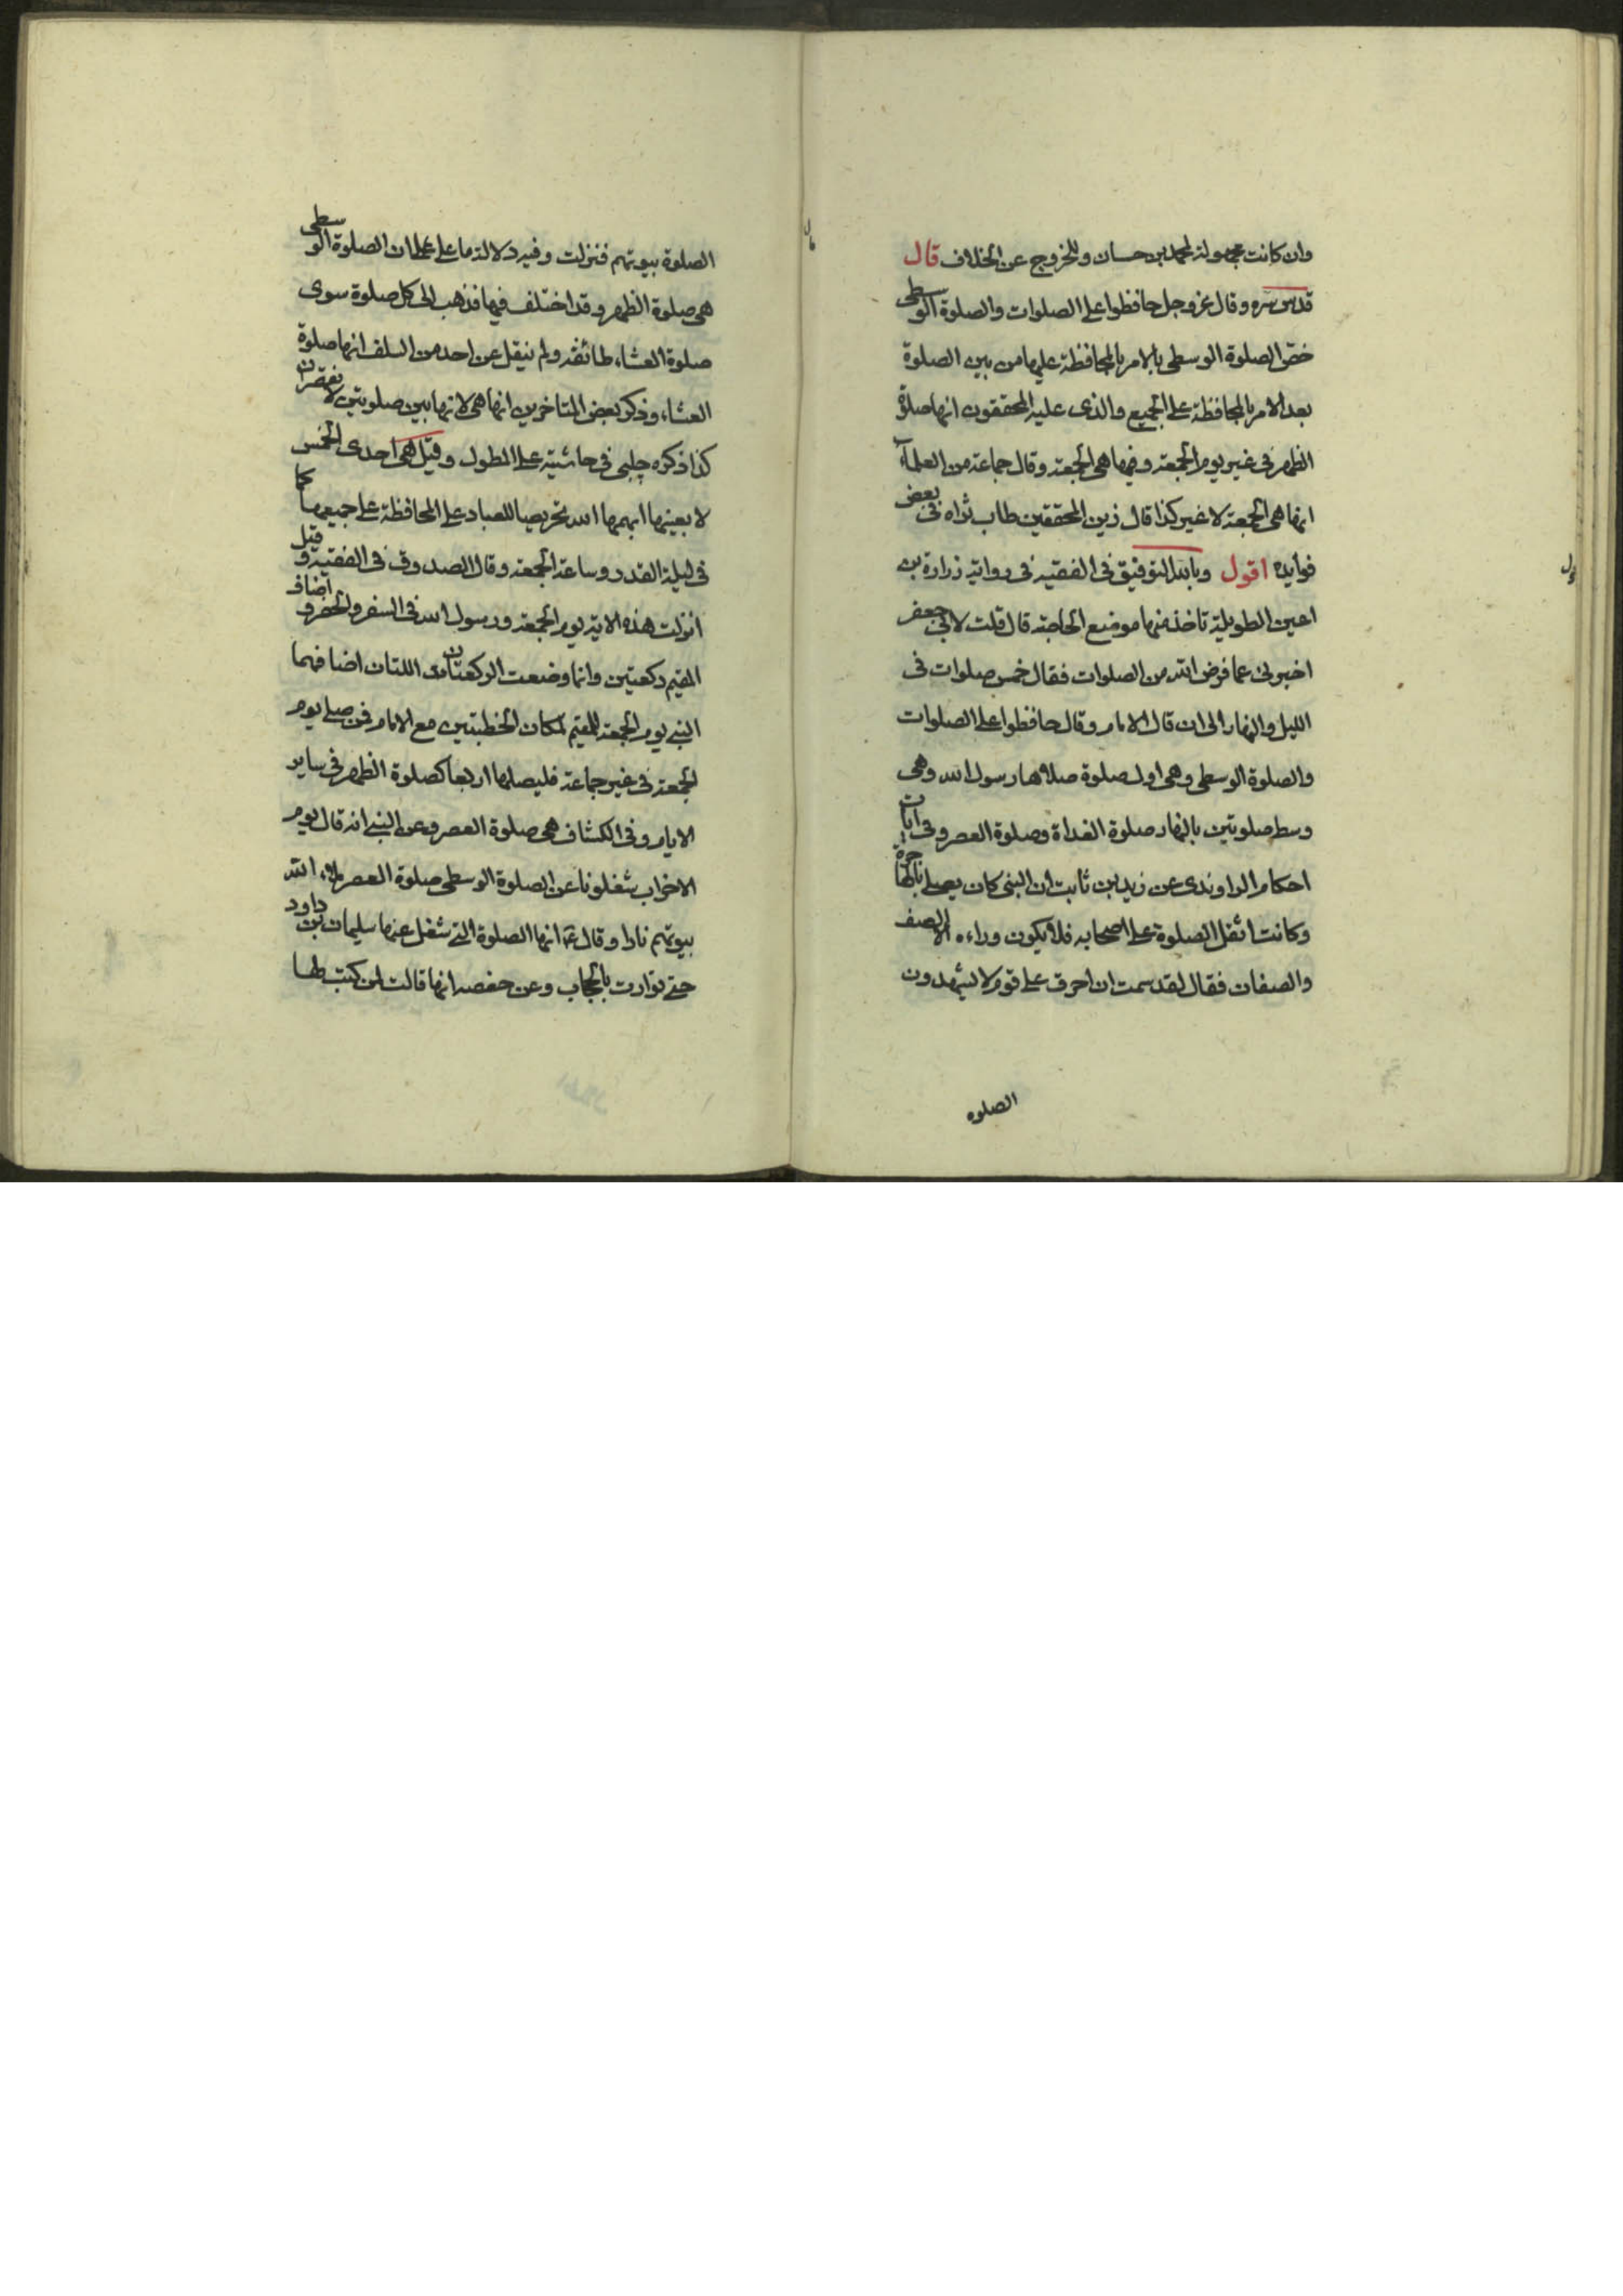 وان كانت مجهولة لمحمد بن حسان وللخروج عن الخلاف قال
قدس سره وقال عز وجل حافظوا على الصلوات والصلوة الوسطى
خص الصلوة الوسطى بالامر بالمحافظة عليها من بين الصلوة
بعد الامر بالمحافظة على الجميع والذى عليه المحققون انها صلوة
الظهر فى غير يوم الجمعة وفيها هى الجمعة وقال جماعة من العلمآء
انها هى الجمعة لا غير كذا قال زين المحققين طاب ثراه فى بعض
فوايده اقول وبالله التوفيق فى الفقيه فى رواية زرارة بن
اعين الطويلة تاخذ منها موضع الحاجة قال قلت لابى جعفر
اخبرنى عما فرض الله من الصلوات فقال خمس صلوات فى
الليل والنهار الى ان قال الامام وقال حافظوا على الصلوات
والصلوة الوسطى وهى اول صلوة صلاها رسول الله وهى
وسط صلوتين بالنهار صلوة الغداة وصلوة العصر وفى ايات
احكام الراوندى عن زيد بن ثابت ان النبى كان يصلى بالهاجرة
وكانت اثقل الصلوة على اصحابه فلا يكون وراءه الا الصف
والصفان فقال لقد هممت ان احرق على قوم لا يشهدون
الصلوه
الصلوة بيوتهم فنزلت وفيه دلالة ما على ان الصلوة الوسطى
هى صلوة الظهر وقد اختلف فيها فذهب الى كل صلوة سوى
صلوة العشاء طائفه ولم ينقل عن احد من السلف انها صلوة
العشاء وذكر بعض المتاخرين انها هى لانها بين صلوتين لا تقصران
كذا ذكره چلبى فى حاشيته على المطول وقيل هى احدى الخمس
لا بعينها ابهمها الله تحريصا للعباد على المحافظة على جميعها كما
فى ليلة القدر وساعة الجمعة وقال الصدوق فى الفقيه وقيل
انزلت هذه الاية يوم الجمعة ورسول الله فى السفر والحضر واضاف
المقيم ركعتين وانما وضعت الركعتان اللتان اضافهما
النبى يوم الجمعة للمقيم لمكان الخطبتين مع الامام فمن صلى يوم
الجمعة فى غير جماعة فليصلها اربعا كصلوة الظهر فى ساير
الايام وفى الكشاف هى صلوة العصر وعن النبى انه قال يوم
الاحزاب شغلونا عن الصلوة الوسطى صلوة العصر ملاء الله
بيوتهم نارا وقال ع انها الصلوة التى شغل عنها سليمان بن داود
حتى توارت بالحجاب وعن حفصه انها قالت لمن كتب لها